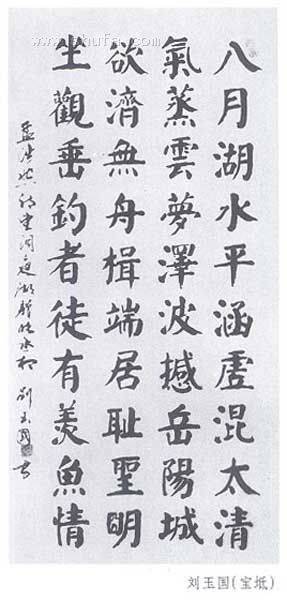 八月湖水平涵虚混太清
氣蒸雲夢澤波撼岳陽城
欲濟無舟楫端居耻聖明
坐觀垂釣者徒有羨魚情
孟浩然 望洞庭湖贈張丞相 劉玉國書
刘玉国(宝坻)